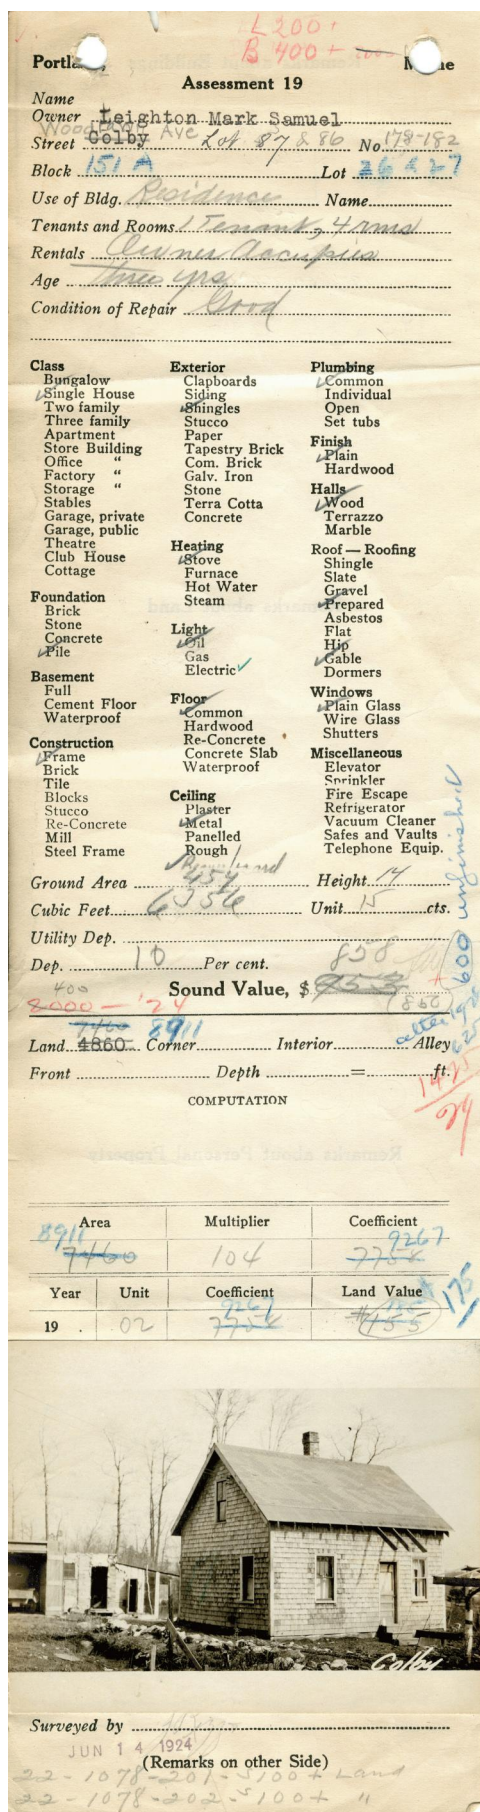 L 200 +
B 400 +
Portland, Maine
Assessment 19
Name
Owner Leighton Mark Samuel
Woodlawn Ave
Street Colby Lot 87 & 86 No. 178-182
Block 151 A Lot 26 & 27
Use of Bldg. Residence Name
Tenants and Rooms 1 Tenant, 4 rms
Rentals Owner Occupies
Age three yrs
Condition of Repair Good
Class
Bungalow
Single House
Two family
Three family
Apartment
Store Building
Office "
Factory "
Storage "
Stables
Garage, private
Garage, public
Theatre
Club House
Cottage
Foundation
Brick
Stone
Concrete
Pile
Basement
Full
Cement Floor
Waterproof
Construction
Frame
Brick
Tile
Blocks
Stucco
Re-Concrete
Mill
Steel Frame
Exterior
Clapboards
Siding
Shingles
Stucco
Paper
Tapestry Brick
Com. Brick
Galv. Iron
Stone
Terra Cotta
Concrete
Heating
Stove
Furnace
Hot Water
Steam
Light
Oil
Gas
Electric
Floor
Common
Hardwood
Re-Concrete
Concrete Slab
Waterproof
Ceiling
Plaster
Metal
Panelled
Rough
Plumbing
Common
Individual
Open
Set tubs
Finish
Plain
Hardwood
Halls
Wood
Terrazzo
Marble
Roof — Roofing
Shingle
Slate
Gravel
Prepared
Asbestos
Flat
Hip
Gable
Dormers
Windows
Plain Glass
Wire Glass
Shutters
Miscellaneous
Elevator
Sprinkler
Fire Escape
Refrigerator
Vacuum Cleaner
Safes and Vaults
Telephone Equip.
Ground Area 454 Height 14
Cubic Feet 6356 Unit 15 cts.
Utility Dep.
Dep. 10 Per cent. 858
600 unfinished
400
Sound Value, $ 953
860
8000 — '24
7460 8911
Land 4860 Corner Interior Alley
Front Depth = ft.
1475
COMPUTATION
Area Multiplier Coefficient
8911 9267
7460 104 7758
Year Unit Coefficient Land Value
9267 185 175
19 02 7758 $155
Colby
Surveyed by
JUN 14 1924
(Remarks on other Side)
22-1078-201-$100+ Land
22-1078-202-$100+ "